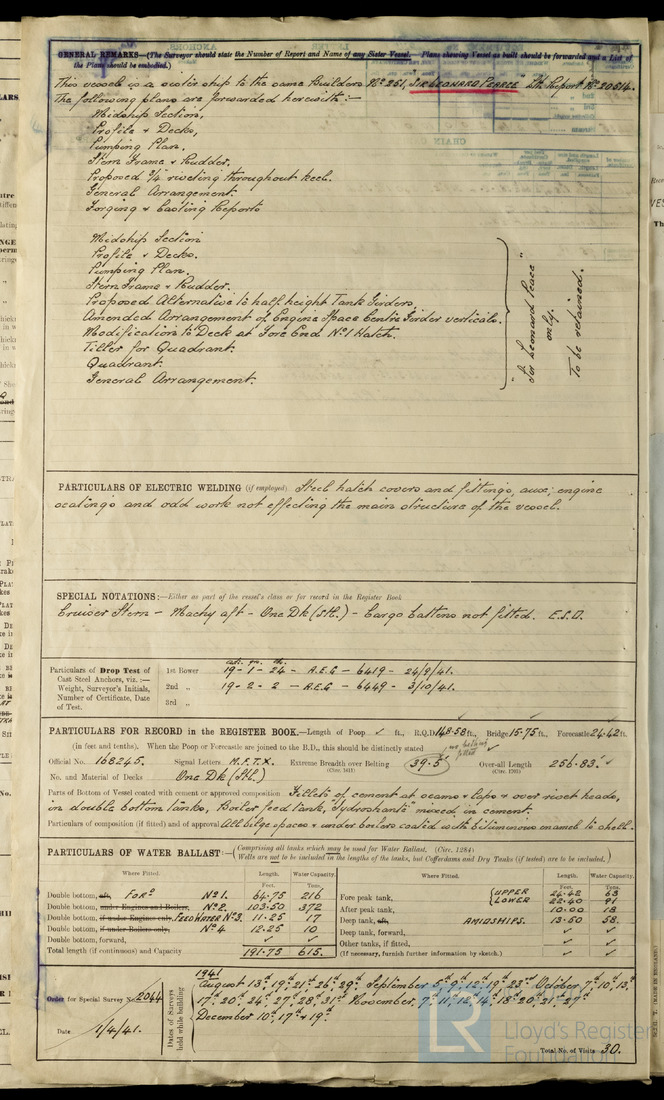 GENERAL REMARKS—(The Surveyor should state the Number of Report and Name of any Sister Vessel. Plans showing Vessel as built should be forwarded and a List of
the Plans should be embodied.)
This vessel is a sister ship to the same Builders No 251, "SIR LEONARD PEARCE" Lth. Report No 20514.
The following plans are forwarded herewith:—
Midship Section,
Profile & Decks,
Pumping Plan.
Stern Frame & Rudder.
Proposed 3/4" riveting throughout keel.
General Arrangement.
Forging & Casting Reports
Midship Section
Profile & Decks.
Pumping Plan.
Stern Frame & Rudder.
Proposed Alternative to half height Tank Girders,
Amended Arrangement of Engine Space Centre Girder verticals.
Modification to Deck at Fore End No 1 Hatch.
Tiller for Quadrant.
Quadrant.
General Arrangement.
"Sir Leonard Pearce"
only.
To be retained.
PARTICULARS OF ELECTRIC WELDING (if employed) Steel hatch covers and fittings, aux: engine
seatings and odd work not effecting the main structure of the vessel.
SPECIAL NOTATIONS:—Either as part of the vessel's class or for record in the Register Book
Cruiser Stern – Machy aft – One Dk (Stl.) – Cargo battens not fitted. E.S.D.
Particulars of Drop Test of
Cast Steel Anchors, viz. :—
Weight, Surveyor's Initials,
Number of Certificate, Date
of Test.
1st Bower 19 - 1 - 24 – A.E.G – 6419 – 24/9/41.
2nd " 19 - 2 - 2 – A.E.G – 6449 – 3/10/41.
3rd "
PARTICULARS FOR RECORD in the REGISTER BOOK.—Length of Poop ✓ ft., R.Q.D. 148.58 ft., Bridge 15.75 ft., Forecastle 24.42 ft.
(in feet and tenths). When the Poop or Forecastle are joined to the B.D., this should be distinctly stated
no belting fitted
Official No. 168245. Signal Letters M.F.T.X. Extreme Breadth over Belting 39.5 Over-all Length 256.83. ✓
No. and Material of Decks One Dk (Stl.)
Parts of Bottom of Vessel coated with cement or approved composition Fillets of cement at seams & laps & over rivet heads,
in double bottom tanks, Boiler feed tank, "Hydroshants" mixed in cement.
Particulars of composition (if fitted) and of approval All bilge spaces & under boilers coated with bituminous enamel to shell.
PARTICULARS OF WATER BALLAST:—(Comprising all tanks which may be used for Water Ballast. (Circ. 1284)
Wells are not to be included in the lengths of the tanks, but Cofferdams and Dry Tanks (if tested) are to be included.)
Where Fitted. Length. Water Capacity. Where Fitted. Length. Water Capacity.
Feet. Tons. Feet. Tons.
Double bottom, aft, FORD No 1. 64.75 216
Double bottom, under Engines and Boilers, No 2. 103.50 372
Double bottom, if under Engines only, FEED WATER No 3. 11.25 17
Double bottom, if under Boilers only, No 4 12.25 10
Double bottom, forward, ✓ ✓
Total length (if continuous) and Capacity 191.75 615.
Fore peak tank, UPPER 24.42 63
LOWER 22.40 91
After peak tank, 10.00 18
Deep tank, aft, AMIDSHIPS. 13.50 58.
Deep tank, forward, ✓ ✓
Other tanks, if fitted, ✓ ✓
(If necessary, furnish further information by sketch.) ✓ ✓
Order for Special Survey No. 2044
Date 1/4/41.
Dates of Surveys
held while building
1941
August 13th, 19th, 21st, 26th, 29th, September 5th, 9th, 12th, 19th, 23rd October 7th, 10th, 13th
17th, 20th, 24th, 27th, 28th, 31st November 7th, 11th, 12th, 14th, 18th, 20th, 21st, 27th
December 10th, 17th & 19th
Total No. of Visits 30.
LR
Lloyd's Register
Foundation